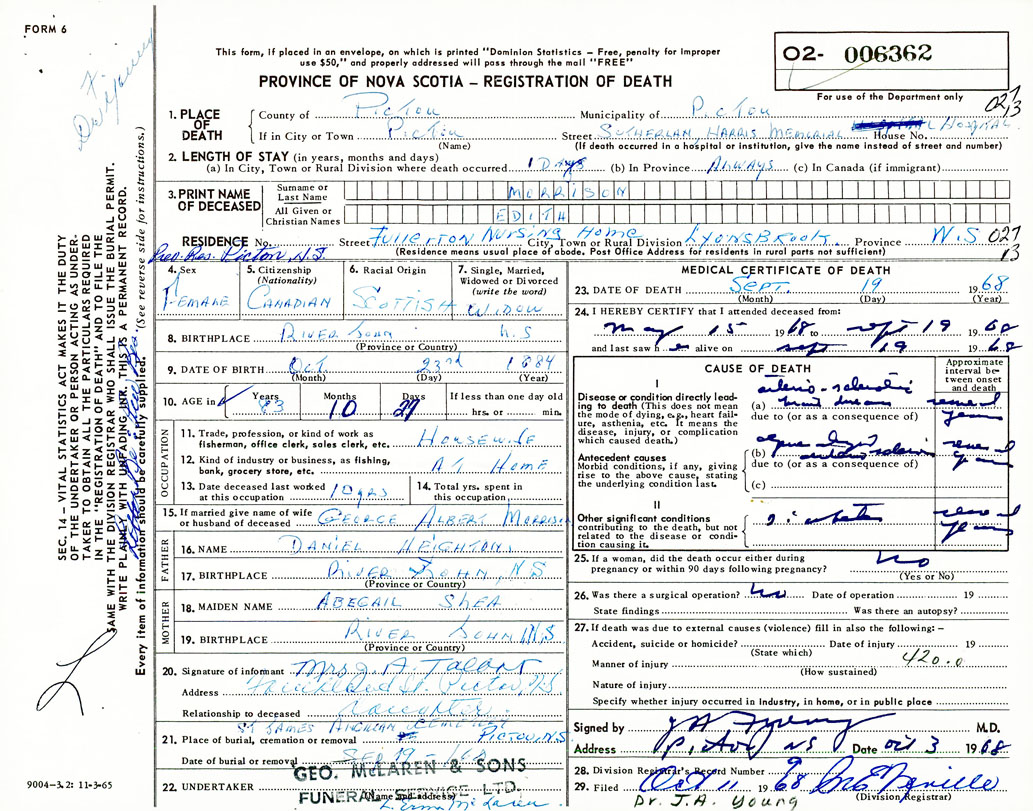 FORM 6
This form, if placed in an envelope, on which is printed "Dominion Statistics – Free, penalty for improper
use $50," and properly addressed will pass through the mail "FREE"
PROVINCE OF NOVA SCOTIA – REGISTRATION OF DEATH
O2- 006362
For use of the Department only
027
13
1. PLACE OF DEATH
County of Pictou Municipality of Pictou
If in City or Town Pictou Street SUTHERLAN HARRIS MEMORIAL HOSPITAL House No.
(Name) (If death occurred in a hospital or institution, give the name instead of street and number)
2. LENGTH OF STAY (in years, months and days)
(a) In City, Town or Rural Division where death occurred 1 Days (b) In Province ALWAYS (c) In Canada (if immigrant)
3. PRINT NAME OF DECEASED
Surname or Last Name MORRISON
All Given or Christian Names EDITH
RESIDENCE No. Street FULLERTON NURSING HOME City, Town or Rural Division LYONSBROOK Province N.S 027
(Residence means usual place of abode. Post Office Address for residents in rural parts not sufficient) 13
Prev. Res. Pictou, N.S.
4. Sex FEMALE
5. Citizenship (Nationality) CANADIAN
6. Racial Origin SCOTTISH
7. Single, Married, Widowed or Divorced (write the word) WIDOW
8. BIRTHPLACE RIVER JOHN N.S
(Province or Country)
9. DATE OF BIRTH Oct. 23rd 1884
(Month) (Day) (Year)
10. AGE in Years 83 Months 10 Days 27 If less than one day old hrs. or min.
OCCUPATION
11. Trade, profession, or kind of work as fisherman, office clerk, sales clerk, etc. HOUSEWIFE
12. Kind of industry or business, as fishing, bank, grocery store, etc. AT HOME
13. Date deceased last worked at this occupation 10 yrs
14. Total yrs. spent in this occupation
15. If married give name of wife or husband of deceased GEORGE ALBERT MORRISON
FATHER
16. NAME DANIEL HEIGHTON
17. BIRTHPLACE RIVER JOHN, NS
(Province or Country)
MOTHER
18. MAIDEN NAME ABEGAIL SHEA
19. BIRTHPLACE RIVER JOHN N.S
(Province or Country)
20. Signature of informant Mrs J. A. Talbot
Address St. Pictou, NS
Relationship to deceased Daughter
ST JAMES ANGLICAN CEMETERY
21. Place of burial, cremation or removal PICTOU, N.S.
Date of burial or removal SEP 19 -
22. UNDERTAKER
(Name and address)
GEO. McLAREN & SONS
FUNERAL SERVICE LTD.
MEDICAL CERTIFICATE OF DEATH
23. DATE OF DEATH SEPT. 19 1968
(Month) (Day) (Year)
24. I HEREBY CERTIFY that I attended deceased from:
May 15 1968 to sept 19 1968
and last saw h e alive on sept 19 1968
CAUSE OF DEATH
Approximate interval between onset and death
I
Disease or condition directly leading to death (This does not mean the mode of dying, e.g., heart failure, asthenia, etc. It means the disease, injury, or complication which caused death.)
(a) arterio-sclerotic heart disease several years
due to (or as a consequence of)
Antecedent causes
Morbid conditions, if any, giving rise to the above cause, stating the underlying condition last.
(b) several years
due to (or as a consequence of)
(c)
II
Other significant conditions contributing to the death, but not related to the disease or condition causing it. Diabetes several years
25. If a woman, did the death occur either during pregnancy or within 90 days following pregnancy? No
(Yes or No)
26. Was there a surgical operation? No Date of operation 19
State findings Was there an autopsy?
27. If death was due to external causes (violence) fill in also the following: –
Accident, suicide or homicide? Date of injury 19
(State which)
Manner of injury 420.0
(How sustained)
Nature of injury
Specify whether injury occurred in industry, in home, or in public place
Signed by J A Young M.D.
Address Pictou NS Date Oct 3 1968
28. Division Registrar's Record Number 9
29. Filed Oct 11 1968 Neville
(Division Registrar)
Dr. J.A. Young
SEC. 14 – VITAL STATISTICS ACT MAKES IT THE DUTY
OF THE UNDERTAKER OR PERSON ACTING AS UNDER-
TAKER TO OBTAIN ALL THE PARTICULARS REQUIRED
IN THE "REGISTRATION OF DEATH" AND TO FILE THE
SAME WITH THE DIVISION REGISTRAR WHO SHALL ISSUE THE BURIAL PERMIT.
WRITE PLAINLY WITH UNFADING INK. THIS IS A PERMANENT RECORD.
Every item of information should be carefully supplied. (See reverse side for instructions.)
9004-3.2: 11-3-65